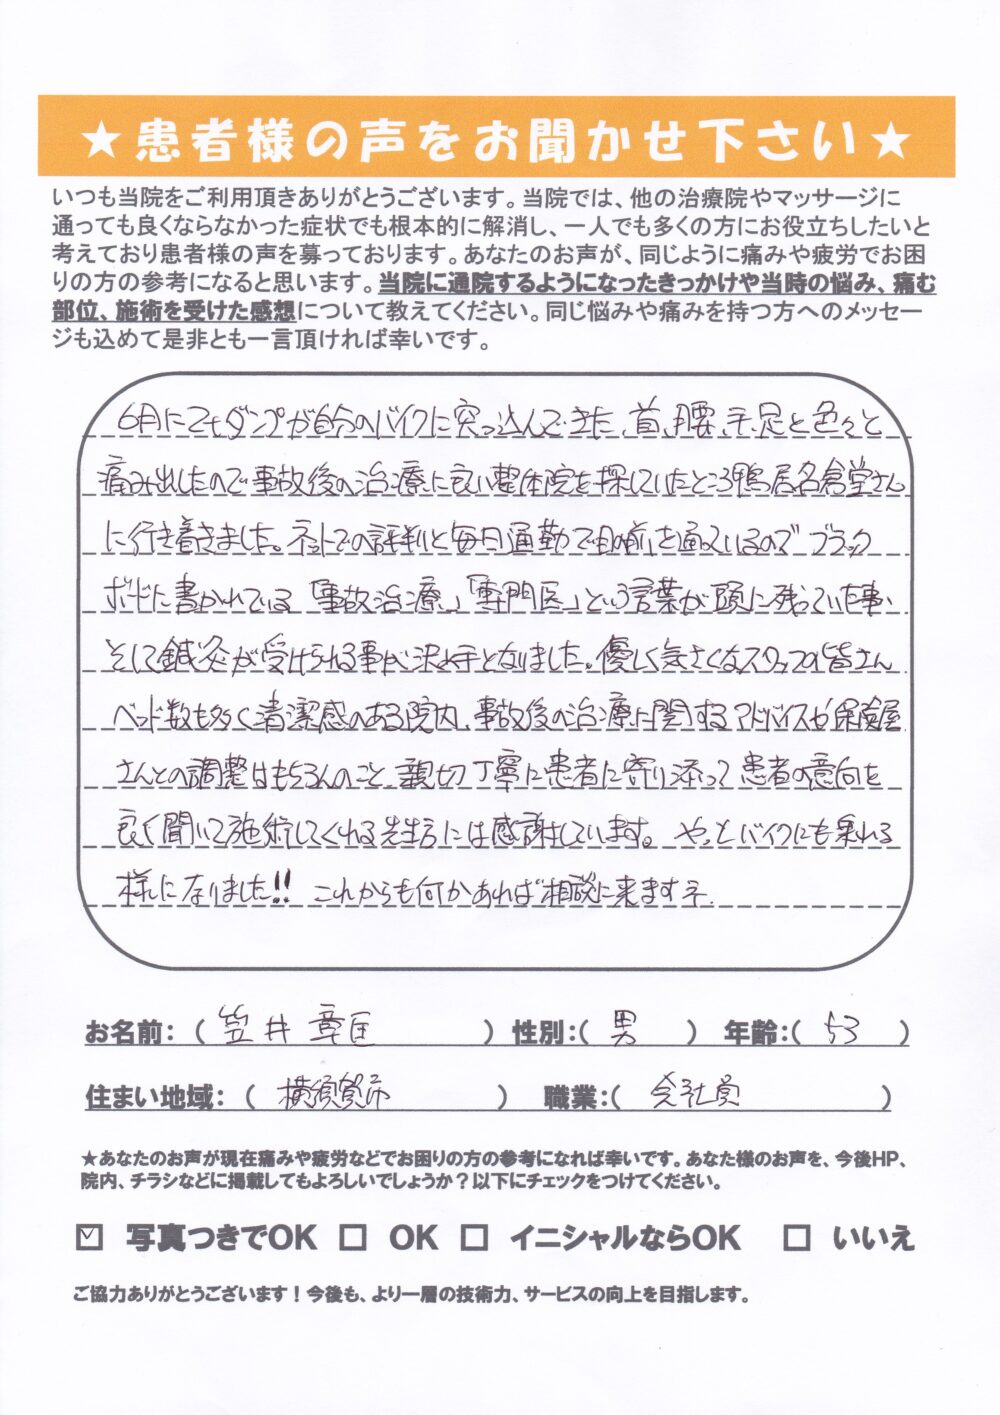 ★患者様の声をお聞かせ下さい★
いつも当院をご利用頂きありがとうございます。当院では、他の治療院やマッサージに
通っても良くならなかった症状でも根本的に解消し、一人でも多くの方にお役立ちしたいと
考えており患者様の声を募っております。あなたのお声が、同じように痛みや疲労でお困
りの方の参考になると思います。当院に通院するようになったきっかけや当時の悩み、痛む
部位、施術を受けた感想について教えてください。同じ悩みや痛みを持つ方へのメッセー
ジも込めて是非とも一言頂ければ幸いです。
6月に ダンプが自分のバイクに突っ込んできた、首、腰、手、足と色々と
痛み出したので事故後の治療に良い整体院を探していたところ鴨居名倉堂さん
に行き着きました。ネットでの評判と毎日通勤で目の前を通っているのでブラック
ボードに書かれている「事故治療」「専門医」という言葉が頭に残っていた事、
そして鍼灸が受けられる事が決め手となりました。優しく気さくなスタッフの皆さん
ベッド数も多く清潔感のある院内、事故後の治療に関するアドバイスや保険屋
さんとの調整はもちろんのこと、親切丁寧に患者に寄り添って患者の意向を
良く聞いて施術してくれる先生方には感謝しています。やっとバイクにも乗れる
様になりました!! これからも何かあれば相談に来ますネ.
お名前:（笠井 章 ） 性別:（ 男 ） 年齢:（ 53 ）
住まい地域:（ 横須賀市 ） 職業:（ 会社員 ）
★あなたのお声が現在痛みや疲労などでお困りの方の参考になれば幸いです。あなた様のお声を、今後HP、
院内、チラシなどに掲載してもよろしいでしょうか？以下にチェックをつけてください。
☑ 写真つきでOK □ OK □ イニシャルならOK □ いいえ
ご協力ありがとうございます！今後も、より一層の技術力、サービスの向上を目指します。